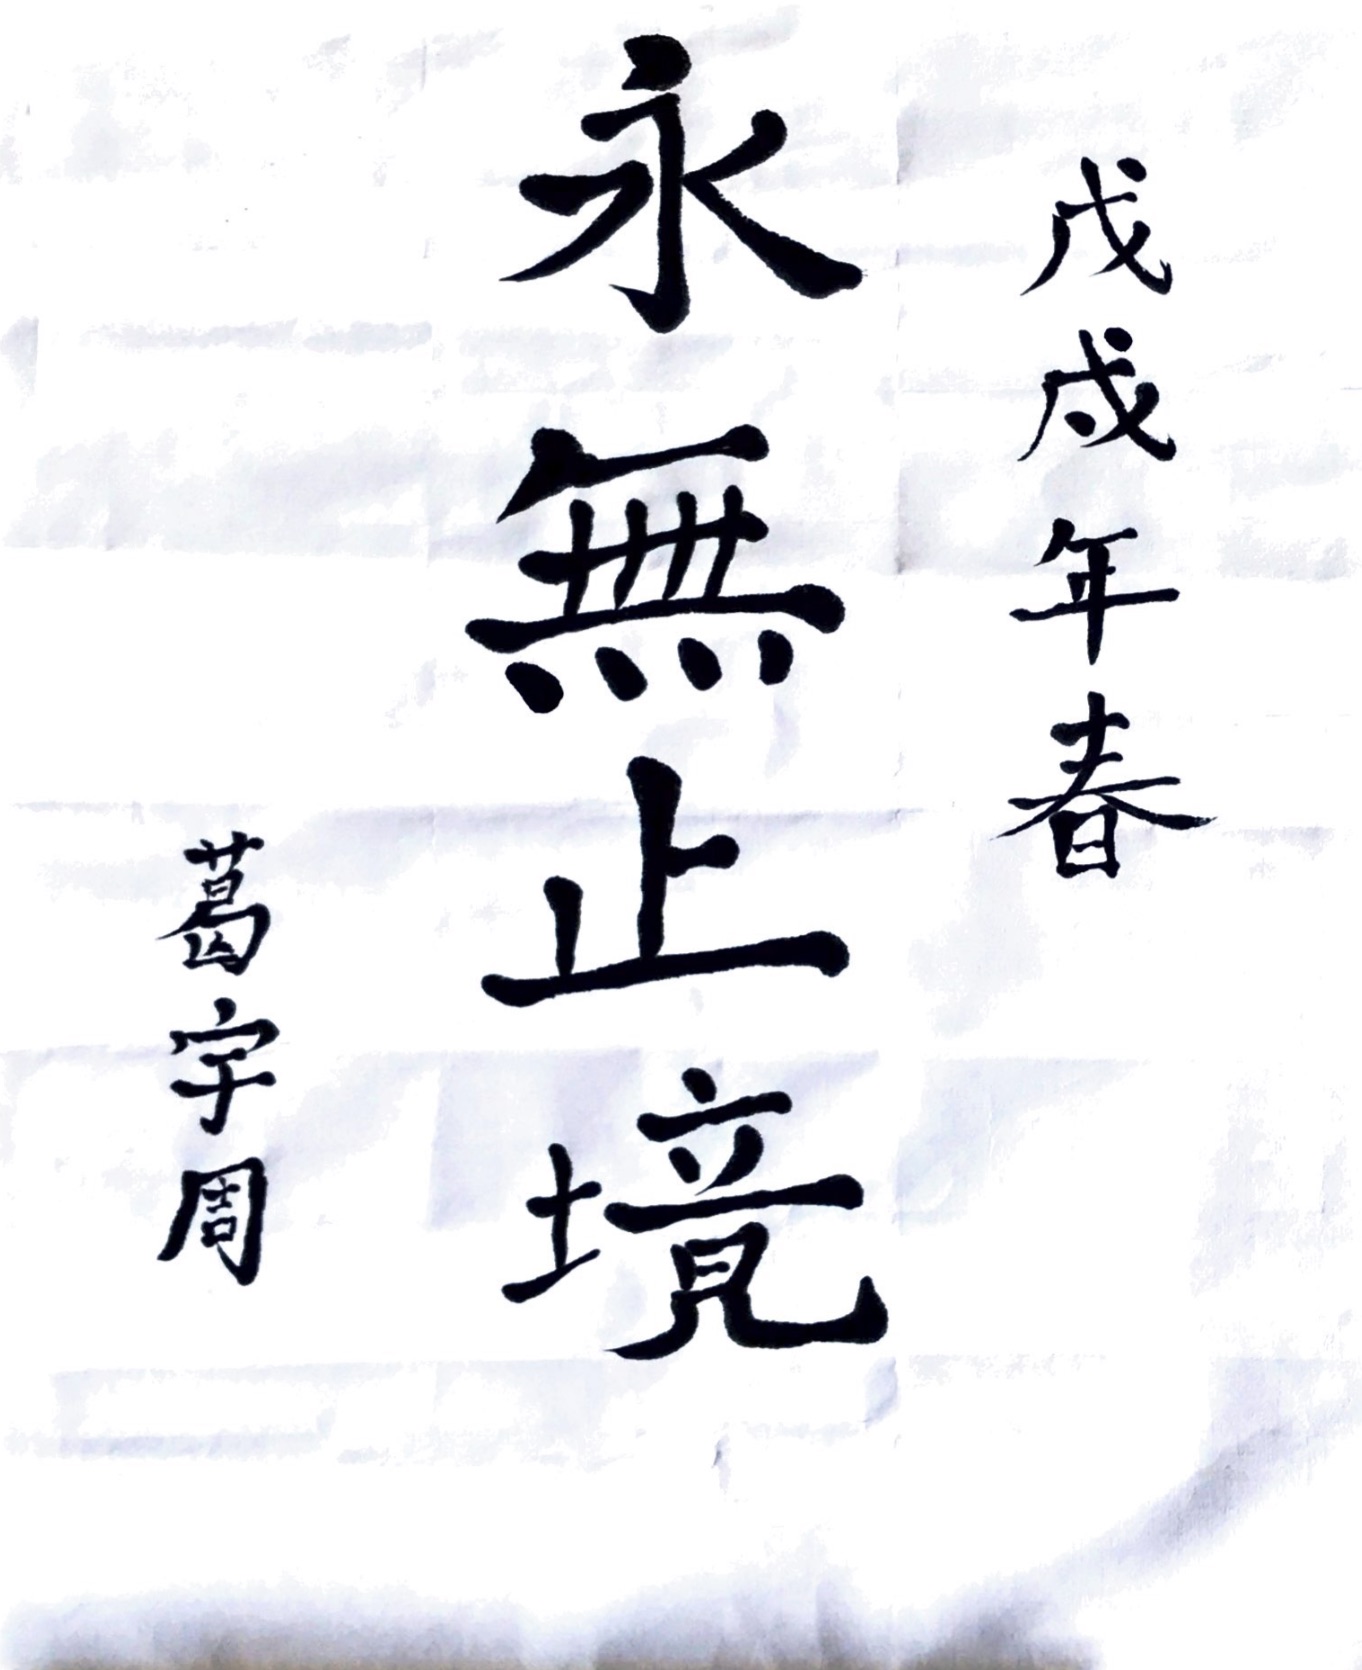 戊戌年春
永無止境
葛宇周